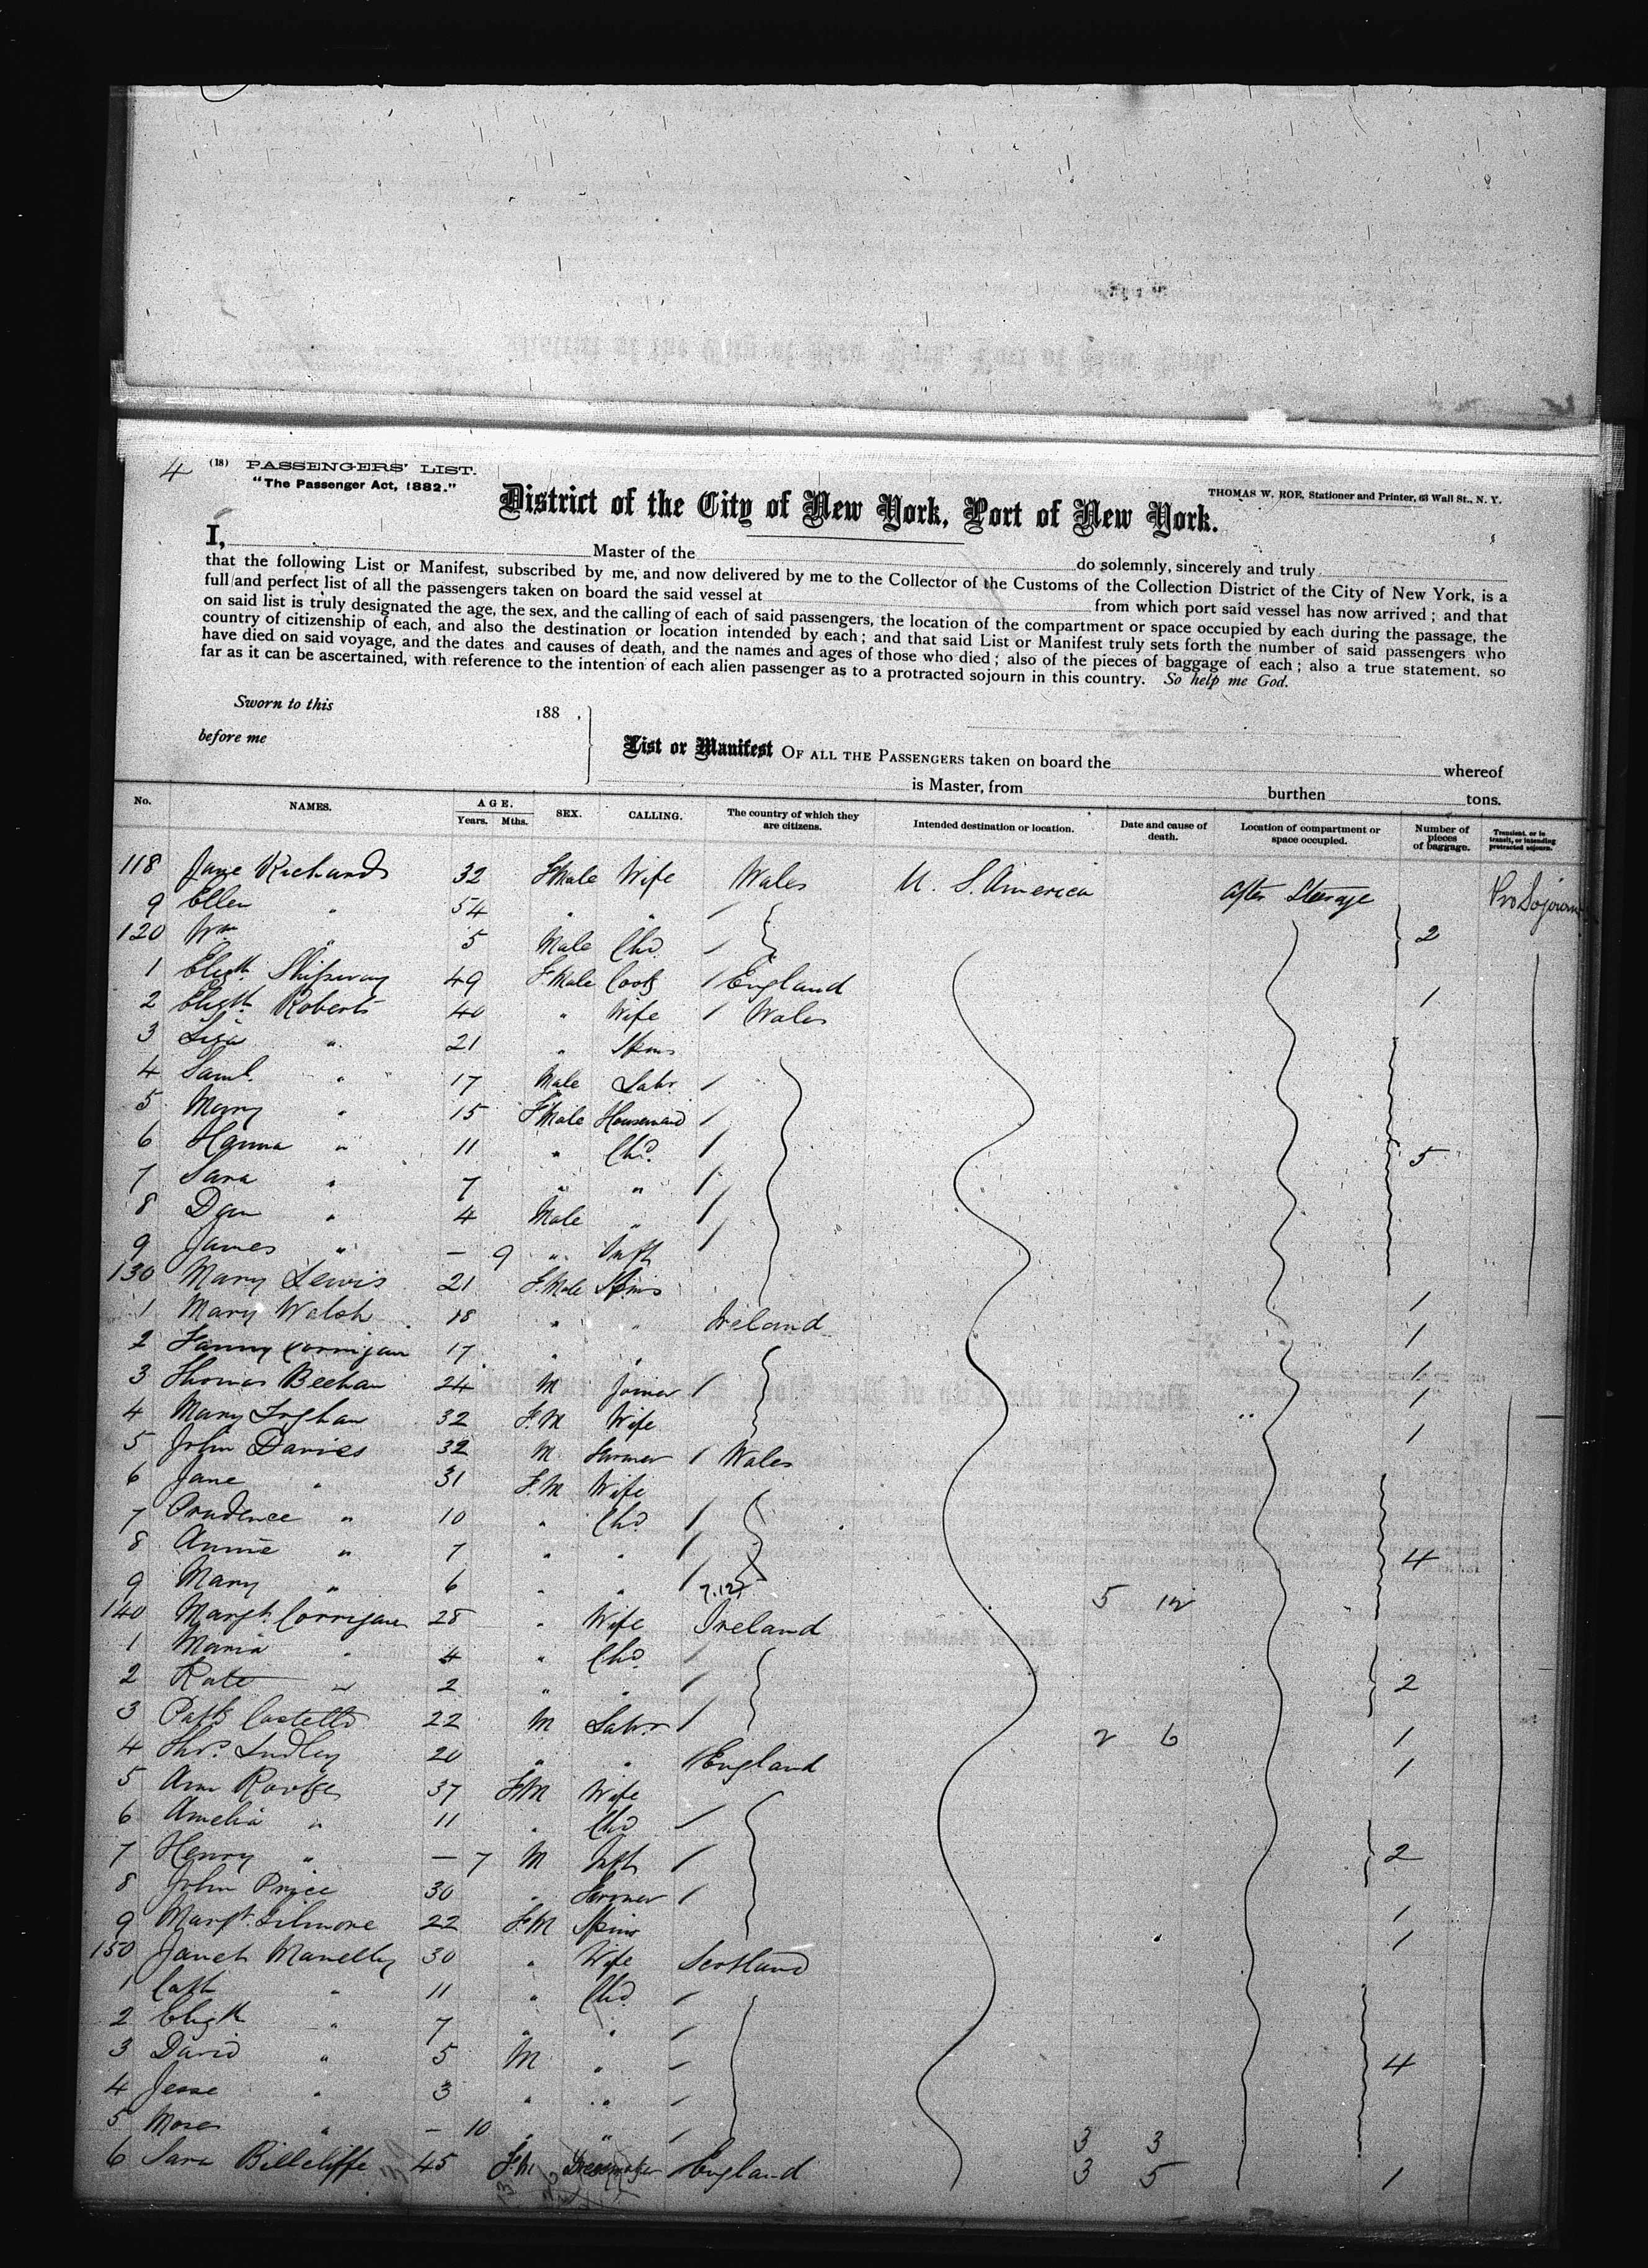 4 (18) PASSENGERS' LIST.
"The Passenger Act, 1882."
THOMAS W. ROE, Stationer and Printer, 63 Wall St., N. Y.
District of the City of New York, Port of New York.
I, Master of the do solemnly, sincerely and truly
that the following List or Manifest, subscribed by me, and now delivered by me to the Collector of the Customs of the Collection District of the City of New York, is a
full and perfect list of all the passengers taken on board the said vessel at from which port said vessel has now arrived; and that
on said list is truly designated the age, the sex, and the calling of each of said passengers, the location of the compartment or space occupied by each during the passage, the
country of citizenship of each, and also the destination or location intended by each; and that said List or Manifest truly sets forth the number of said passengers who
have died on said voyage, and the dates and causes of death, and the names and ages of those who died; also of the pieces of baggage of each; also a true statement, so
far as it can be ascertained, with reference to the intention of each alien passenger as to a protracted sojourn in this country. So help me God.
Sworn to this 188 ,
before me
List or Manifest OF ALL THE PASSENGERS taken on board the whereof
is Master, from burthen tons.
No. NAMES. AGE. Years. Mths. SEX. CALLING. The country of which they are citizens. Intended destination or location. Date and cause of death. Location of compartment or space occupied. Number of pieces of baggage. Transient, or in transit, or intending protracted sojourn.
118 Jane Richards 32 F Male Wife Wales U. S. America After Steerage Pro Sojourn
9 Ellen " 54 " "
120 Wm " 5 Male Chd 2
1 Elizth Shipway 49 F Male Cook England 1
2 Elizth Roberts 40 " Wife Wales
3 Liza " 21 " Spins
4 Saml. " 17 Male Labr
5 Mary " 15 F Male Housemaid
6 Hanna " 11 " Chd. 5
7 Sara " 7 " "
8 Dan " 4 Male "
9 James " – 9 " Inft
130 Mary Lewis 21 F. Male Spins 1
1 Mary Walsh 18 " " Ireland 1
2 Fanny Corrigan 17 " " 1
3 Thomas Beehan 24 M Joiner 1
4 Mary 32 F. M Wife 1
5 John Davies 32 M Farmer Wales
6 Jane " 31 F. M Wife
7 Prudence " 10 " Chd
8 Annie " 7 " " 4
9 Mary " 6 " "
140 Margt. Corrigan 28 " Wife Ireland 5 12
1 Maria " 4 " Chd
2 Kate " 2 " " 2
3 Patk Costello 22 M Labr 1
4 Thos. Ludley 20 " " England 2 6 1
5 Ann 37 F. M Wife
6 Amelia " 11 " Chd
7 Henry " – 7 M Inft 2
8 John Price 30 " Farmer 1
9 Margt. Gilmore 22 F. M Spins 1
150 Janet Manelly 30 " Wife Scotland
1 Cath " 11 " Chd.
2 Elizth " 7 " "
3 David " 5 M " 4
4 Jesse " 3 " "
5 Moses " – 10 " " 3 3
6 Sara Billcliffe 45 F. M Dressmaker England 3 5 1